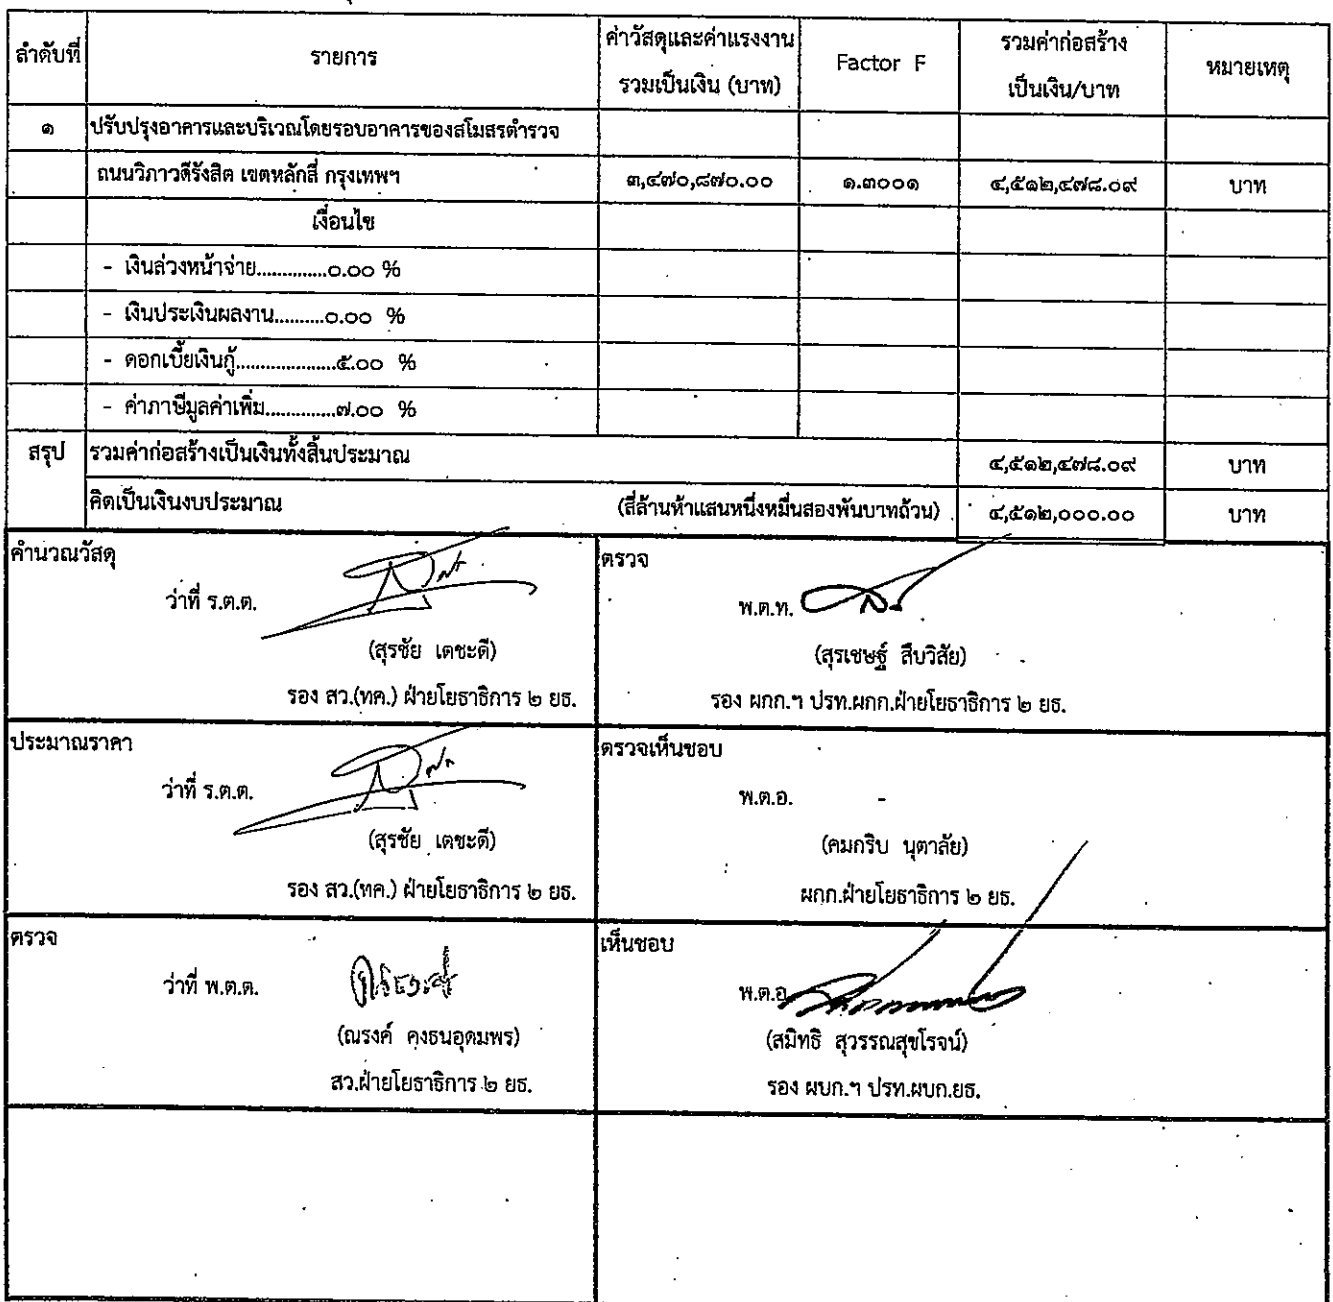 ลำดับที่ รายการ ค่าวัสดุและค่าแรงงาน รวมเป็นเงิน (บาท) Factor F รวมค่าก่อสร้าง เป็นเงิน/บาท หมายเหตุ
๑ ปรับปรุงอาคารและบริเวณโดยรอบอาคารของสโมสรตำรวจ
ถนนวิภาวดีรังสิต เขตหลักสี่ กรุงเทพฯ ๓,๔๗๐,๘๗๐.๐๐ ๑.๓๐๐๑ ๔,๕๑๒,๔๗๘.๐๙ บาท
เงื่อนไข
- เงินล่วงหน้าจ่าย..............๐.๐๐ %
- เงินประเงินผลงาน..........๐.๐๐ %
- ดอกเบี้ยเงินกู้....................๕.๐๐ %
- ค่าภาษีมูลค่าเพิ่ม..............๗.๐๐ %
สรุป รวมค่าก่อสร้างเป็นเงินทั้งสิ้นประมาณ ๔,๕๑๒,๔๗๘.๐๙ บาท
คิดเป็นเงินงบประมาณ (สี่ล้านห้าแสนหนึ่งหมื่นสองพันบาทถ้วน) ๔,๕๑๒,๐๐๐.๐๐ บาท
คำนวณวัสดุ
ว่าที่ ร.ต.ต.
(สุรชัย เตชะดี)
รอง สว.(ทค.) ฝ่ายโยธาธิการ ๒ ยธ.
ตรวจ
พ.ต.ท.
(สุรเชษฐ์ สืบวิสัย)
รอง ผกก.ฯ ปรท.ผกก.ฝ่ายโยธาธิการ ๒ ยธ.
ประมาณราคา
ว่าที่ ร.ต.ต.
(สุรชัย เตชะดี)
รอง สว.(ทค.) ฝ่ายโยธาธิการ ๒ ยธ.
ตรวจเห็นชอบ
พ.ต.อ. -
(คมกริบ นุตาลัย)
ผกก.ฝ่ายโยธาธิการ ๒ ยธ.
ตรวจ
ว่าที่ พ.ต.ต.
(ณรงค์ คงธนอุดมพร)
สว.ฝ่ายโยธาธิการ ๒ ยธ.
เห็นชอบ
พ.ต.อ
(สมิทธิ สุวรรณสุขโรจน์)
รอง ผบก.ฯ ปรท.ผบก.ยธ.